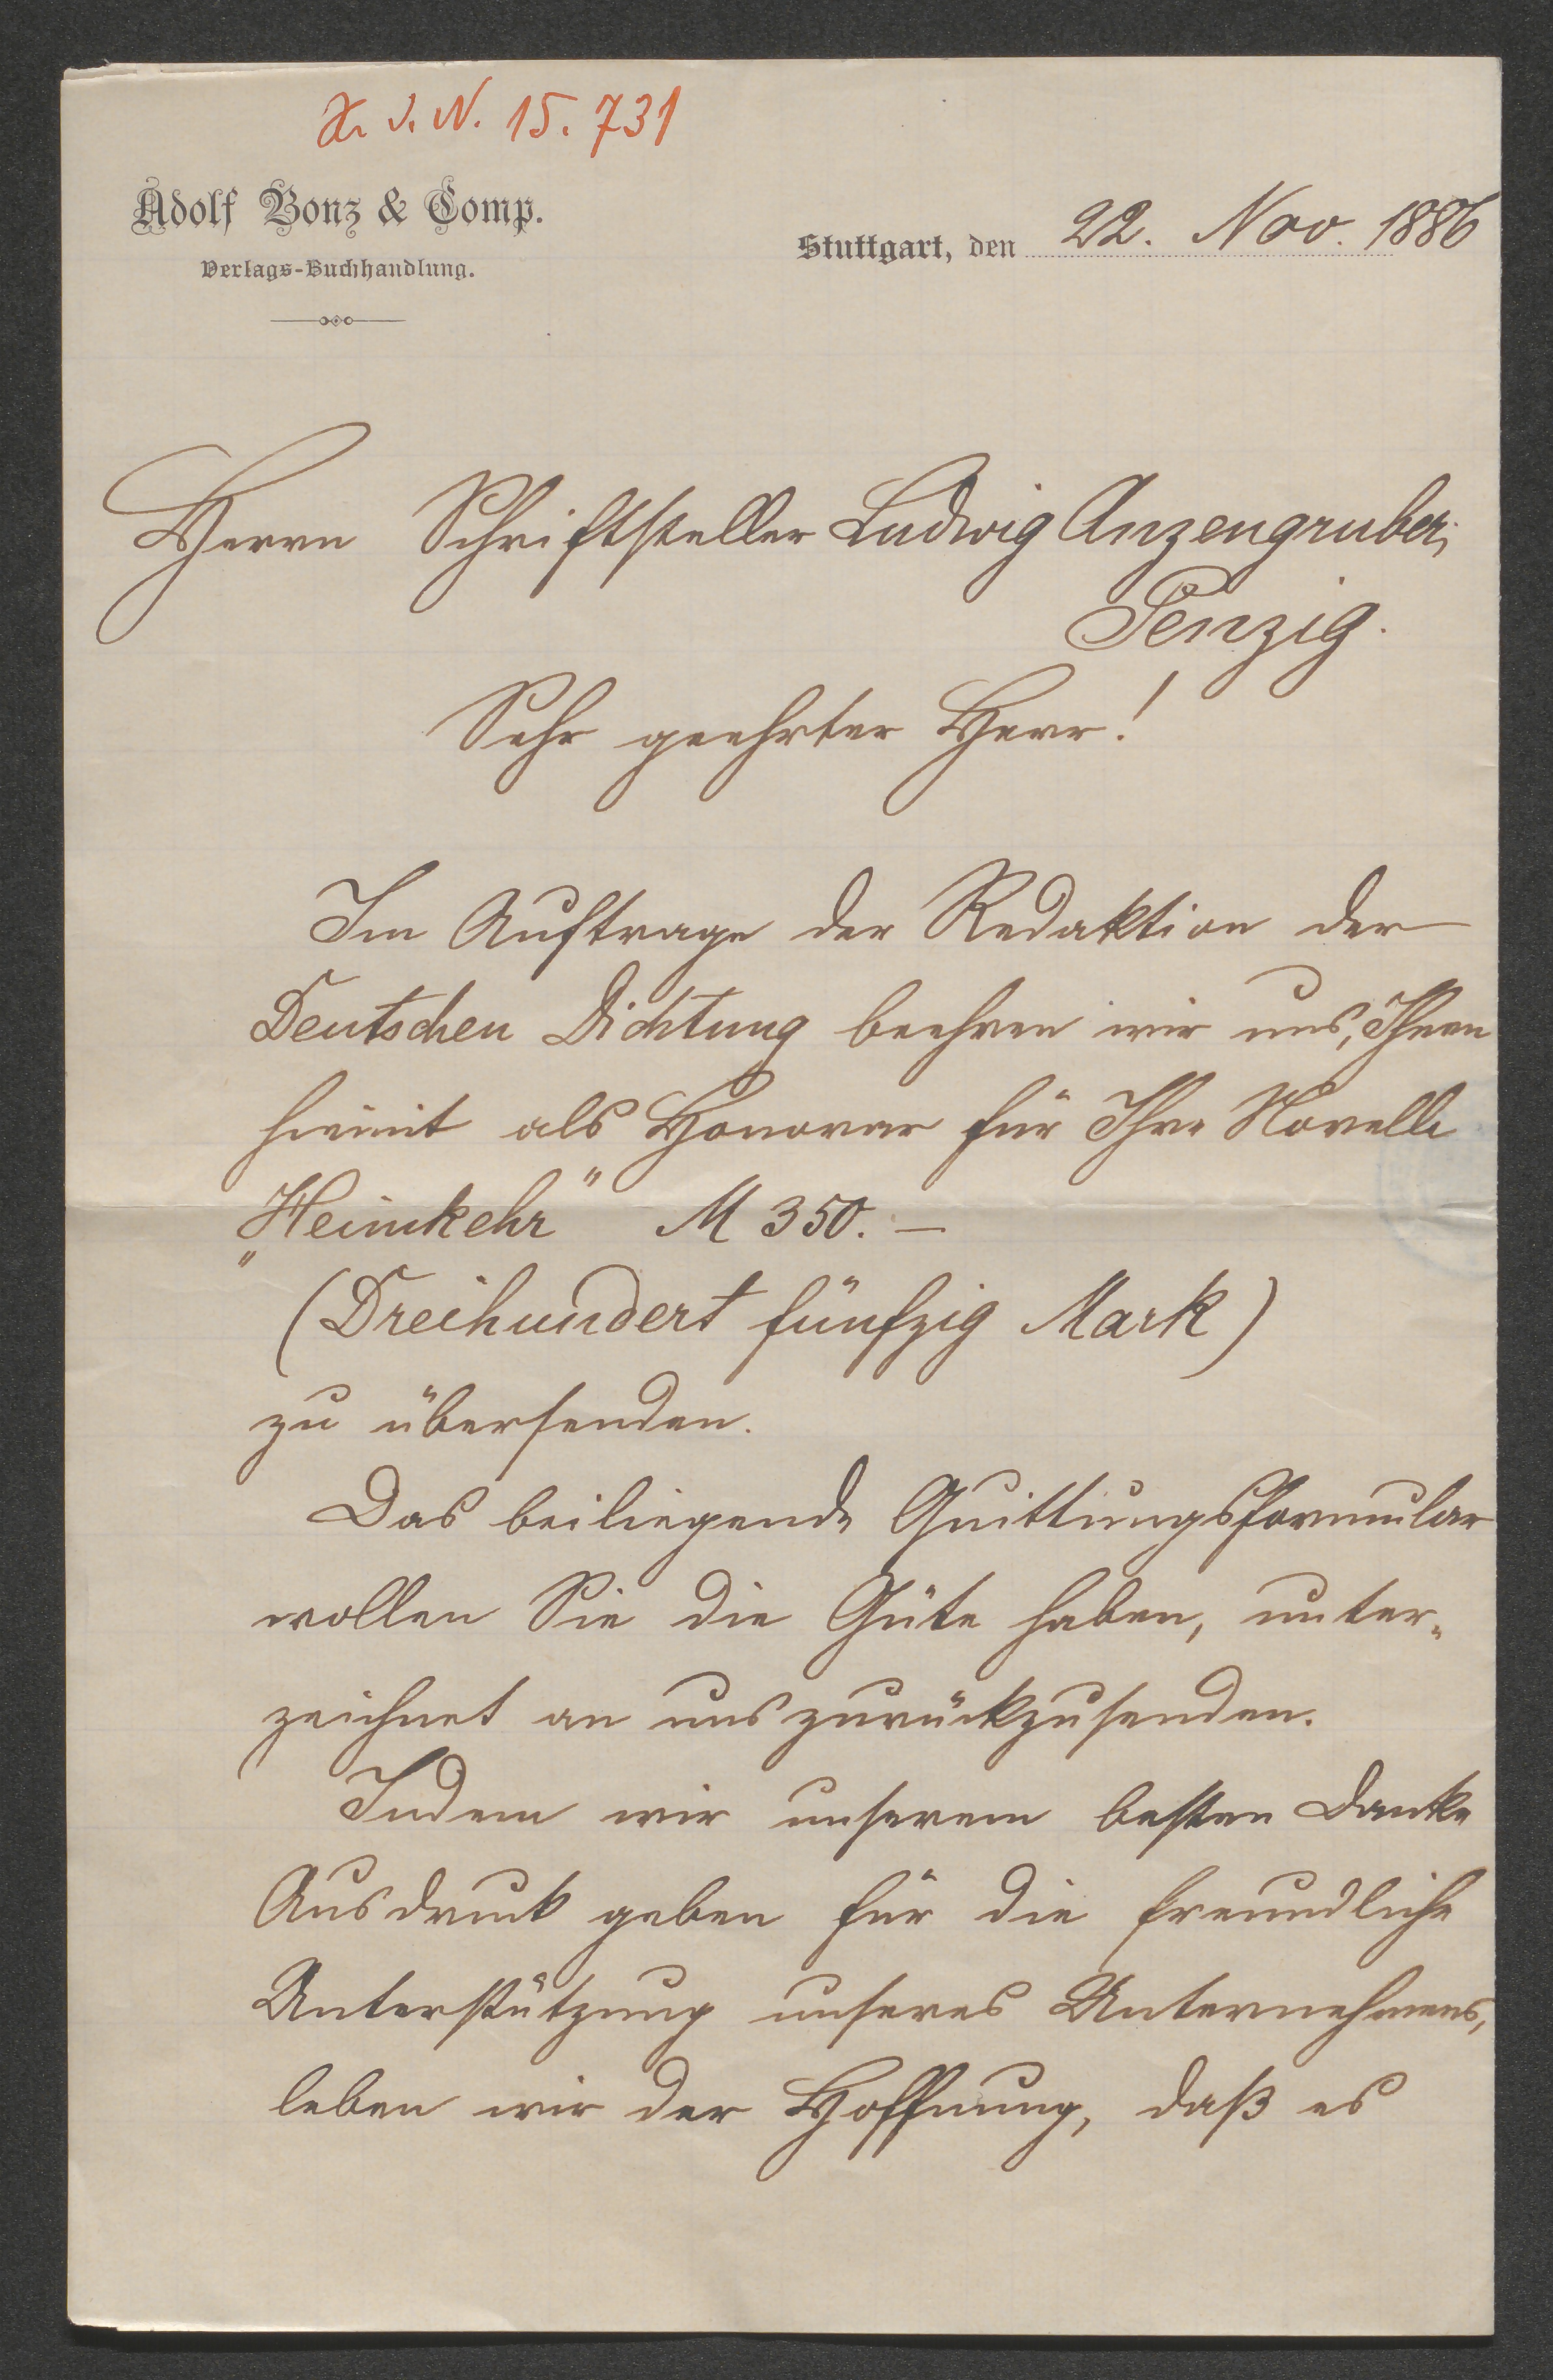 H. I. N. 15.731
Adolf Bonz & Comp.
Verlags-Buchhandlung.
Stuttgart, den 22. Nov. 1886
Herrn Schriftsteller Ludwig Anzengruber,
Penzig.
Sehr geehrter Herr!
Im Auftrage der Redaktion der
Deutschen Dichtung beehren wir uns, Ihnen
hiemit als Honorar für Ihre Novelle
„Heimkehr" M 350.—
(Dreihundert fünfzig Mark)
zu übersenden.
Das beiliegende Quittungsformular
wollen Sie die Güte haben, unter-
zeichnet an uns zurückzusenden.
Indem wir unserem besten Danke
Ausdruck geben für die freundliche
Unterstützung unseres Unternehmens,
leben wir der Hoffnung, daß es